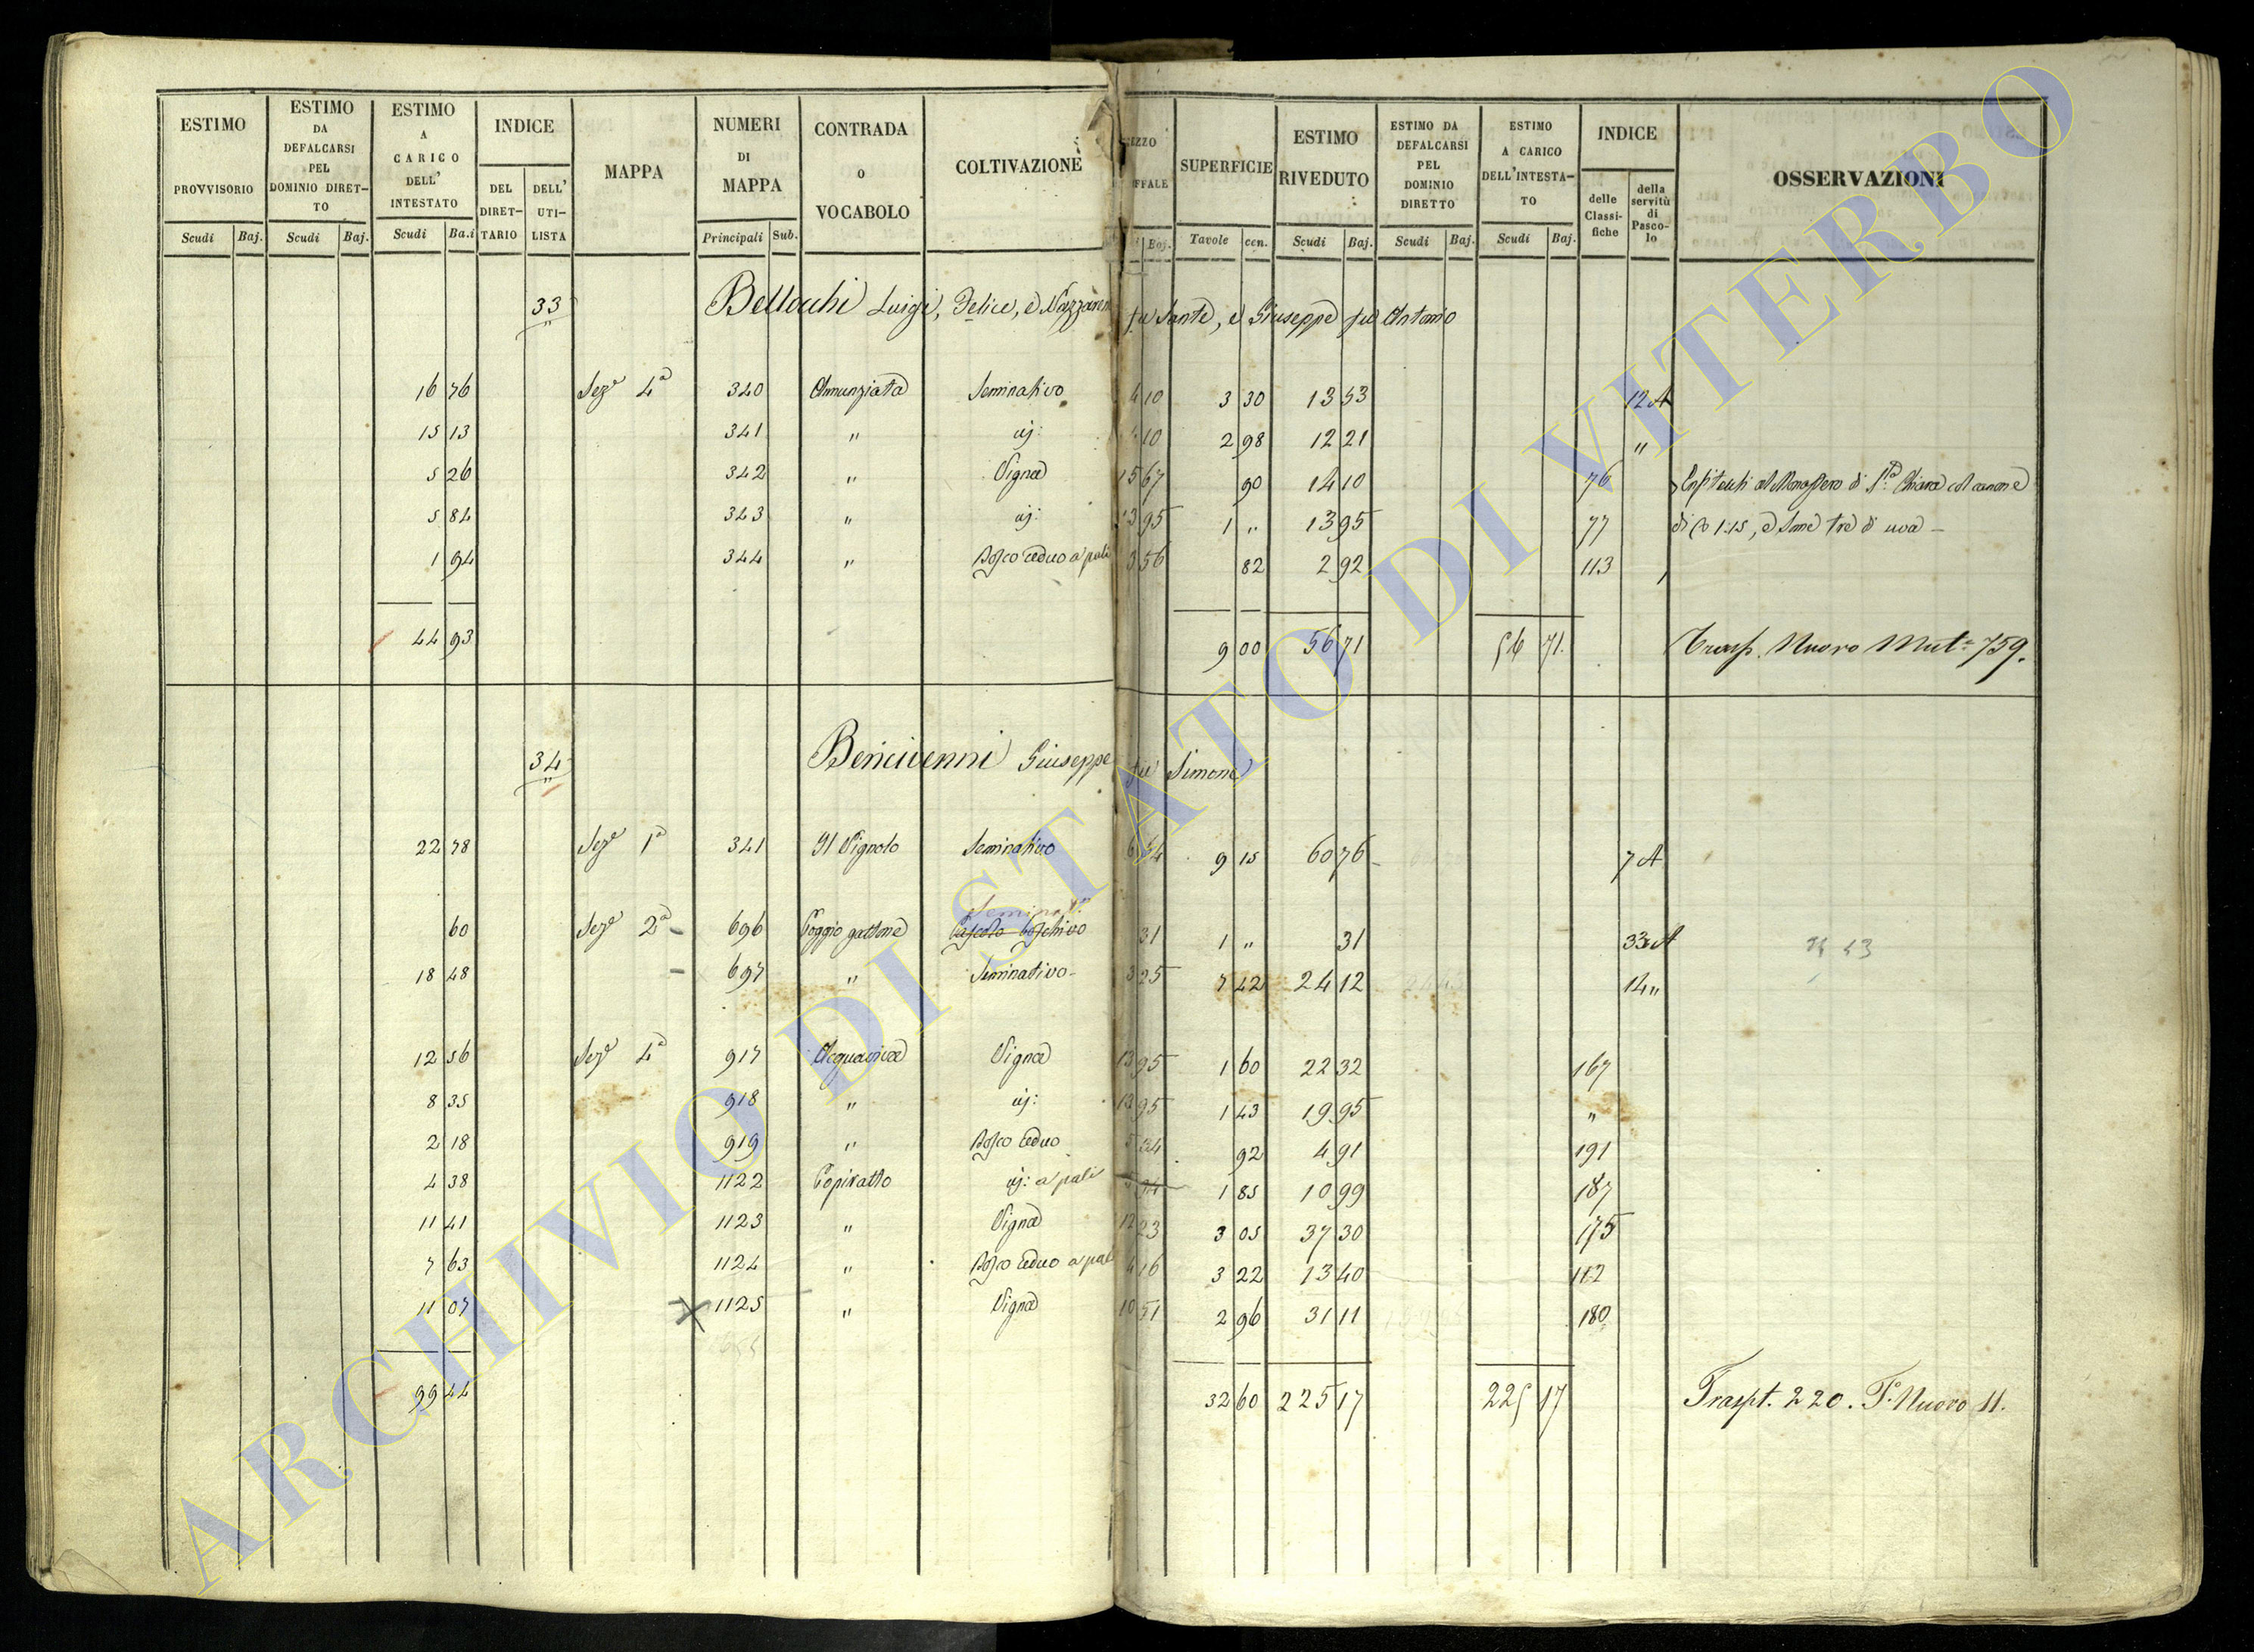 ESTIMO PROVVISORIO | ESTIMO DA DEFALCARSI PEL DOMINIO DIRET-TO | ESTIMO A CARICO DELL' INTESTATO | INDICE | MAPPA | NUMERI DI MAPPA | CONTRADA O VOCABOLO | COLTIVAZIONE | SUPERFICIE | ESTIMO RIVEDUTO | ESTIMO DA DEFALCARSI PEL DOMINIO DIRETTO | ESTIMO A CARICO DELL'INTESTA-TO | INDICE | OSSERVAZIONI
DEL DIRET-TARIO | DELL' UTI-LISTA | delle Classi-fiche | della servitù di Pasco-lo
Scudi | Baj. | Scudi | Baj. | Scudi | Ba.i | Principali | Sub. | Boj. | Tavole | cen. | Scudi | Baj. | Scudi | Baj. | Scudi | Baj.
33 Bellocchi Luigi, Felice, e Nazzareno fu Sante, e Giuseppe fu Antonio
16 76 Seze 4a 340 Annunziata Seminativo 4 10 3 30 13 53 12 A
15 13 341 " id: 4 10 2 98 12 21 "
5 26 342 " Vigna 15 67 90 14 10 76 Enfiteuti al Monastero di Sta Chiara col canone
5 84 343 " id: 13 95 1 " 13 95 77 di 1:15, e Some tre di uva
1 94 344 " Bosco ceduo a pali 3 56 82 2 92 113
44 93 9 00 56 71 56 71. Trasp. Nuovo Mut. 759.
34 Bencivenni Giuseppe fu Simone
22 78 Seze 1a 341 Il Vignolo Seminativo 6 64 9 15 60 76 7 A
Seminat.
60 Seze 2a 696 Poggio gattone Pascolo boschivo 31 1 " 31 33 A
18 48 697 " Seminativo 3 25 7 42 24 12 14 "
12 56 Seze 4a 917 Acquaviva Vigna 13 95 1 60 22 32 167
8 35 918 " id: 13 95 1 43 19 95 "
2 18 919 " Bosco ceduo 5 34 92 4 91 191
4 38 1122 Copiratto id: a pali 1 85 10 99 187
11 41 1123 " Vigna 12 23 3 05 37 30 175
7 63 1124 " Bosco ceduo a pali 4 16 3 22 13 40 112
11 07 1125 " Vigna 10 51 2 96 31 11 180
99 44 32 60 225 17 225 17 Traspt. 220. To Nuovo 11.
ARCHIVIO DI STATO DI VITERBO